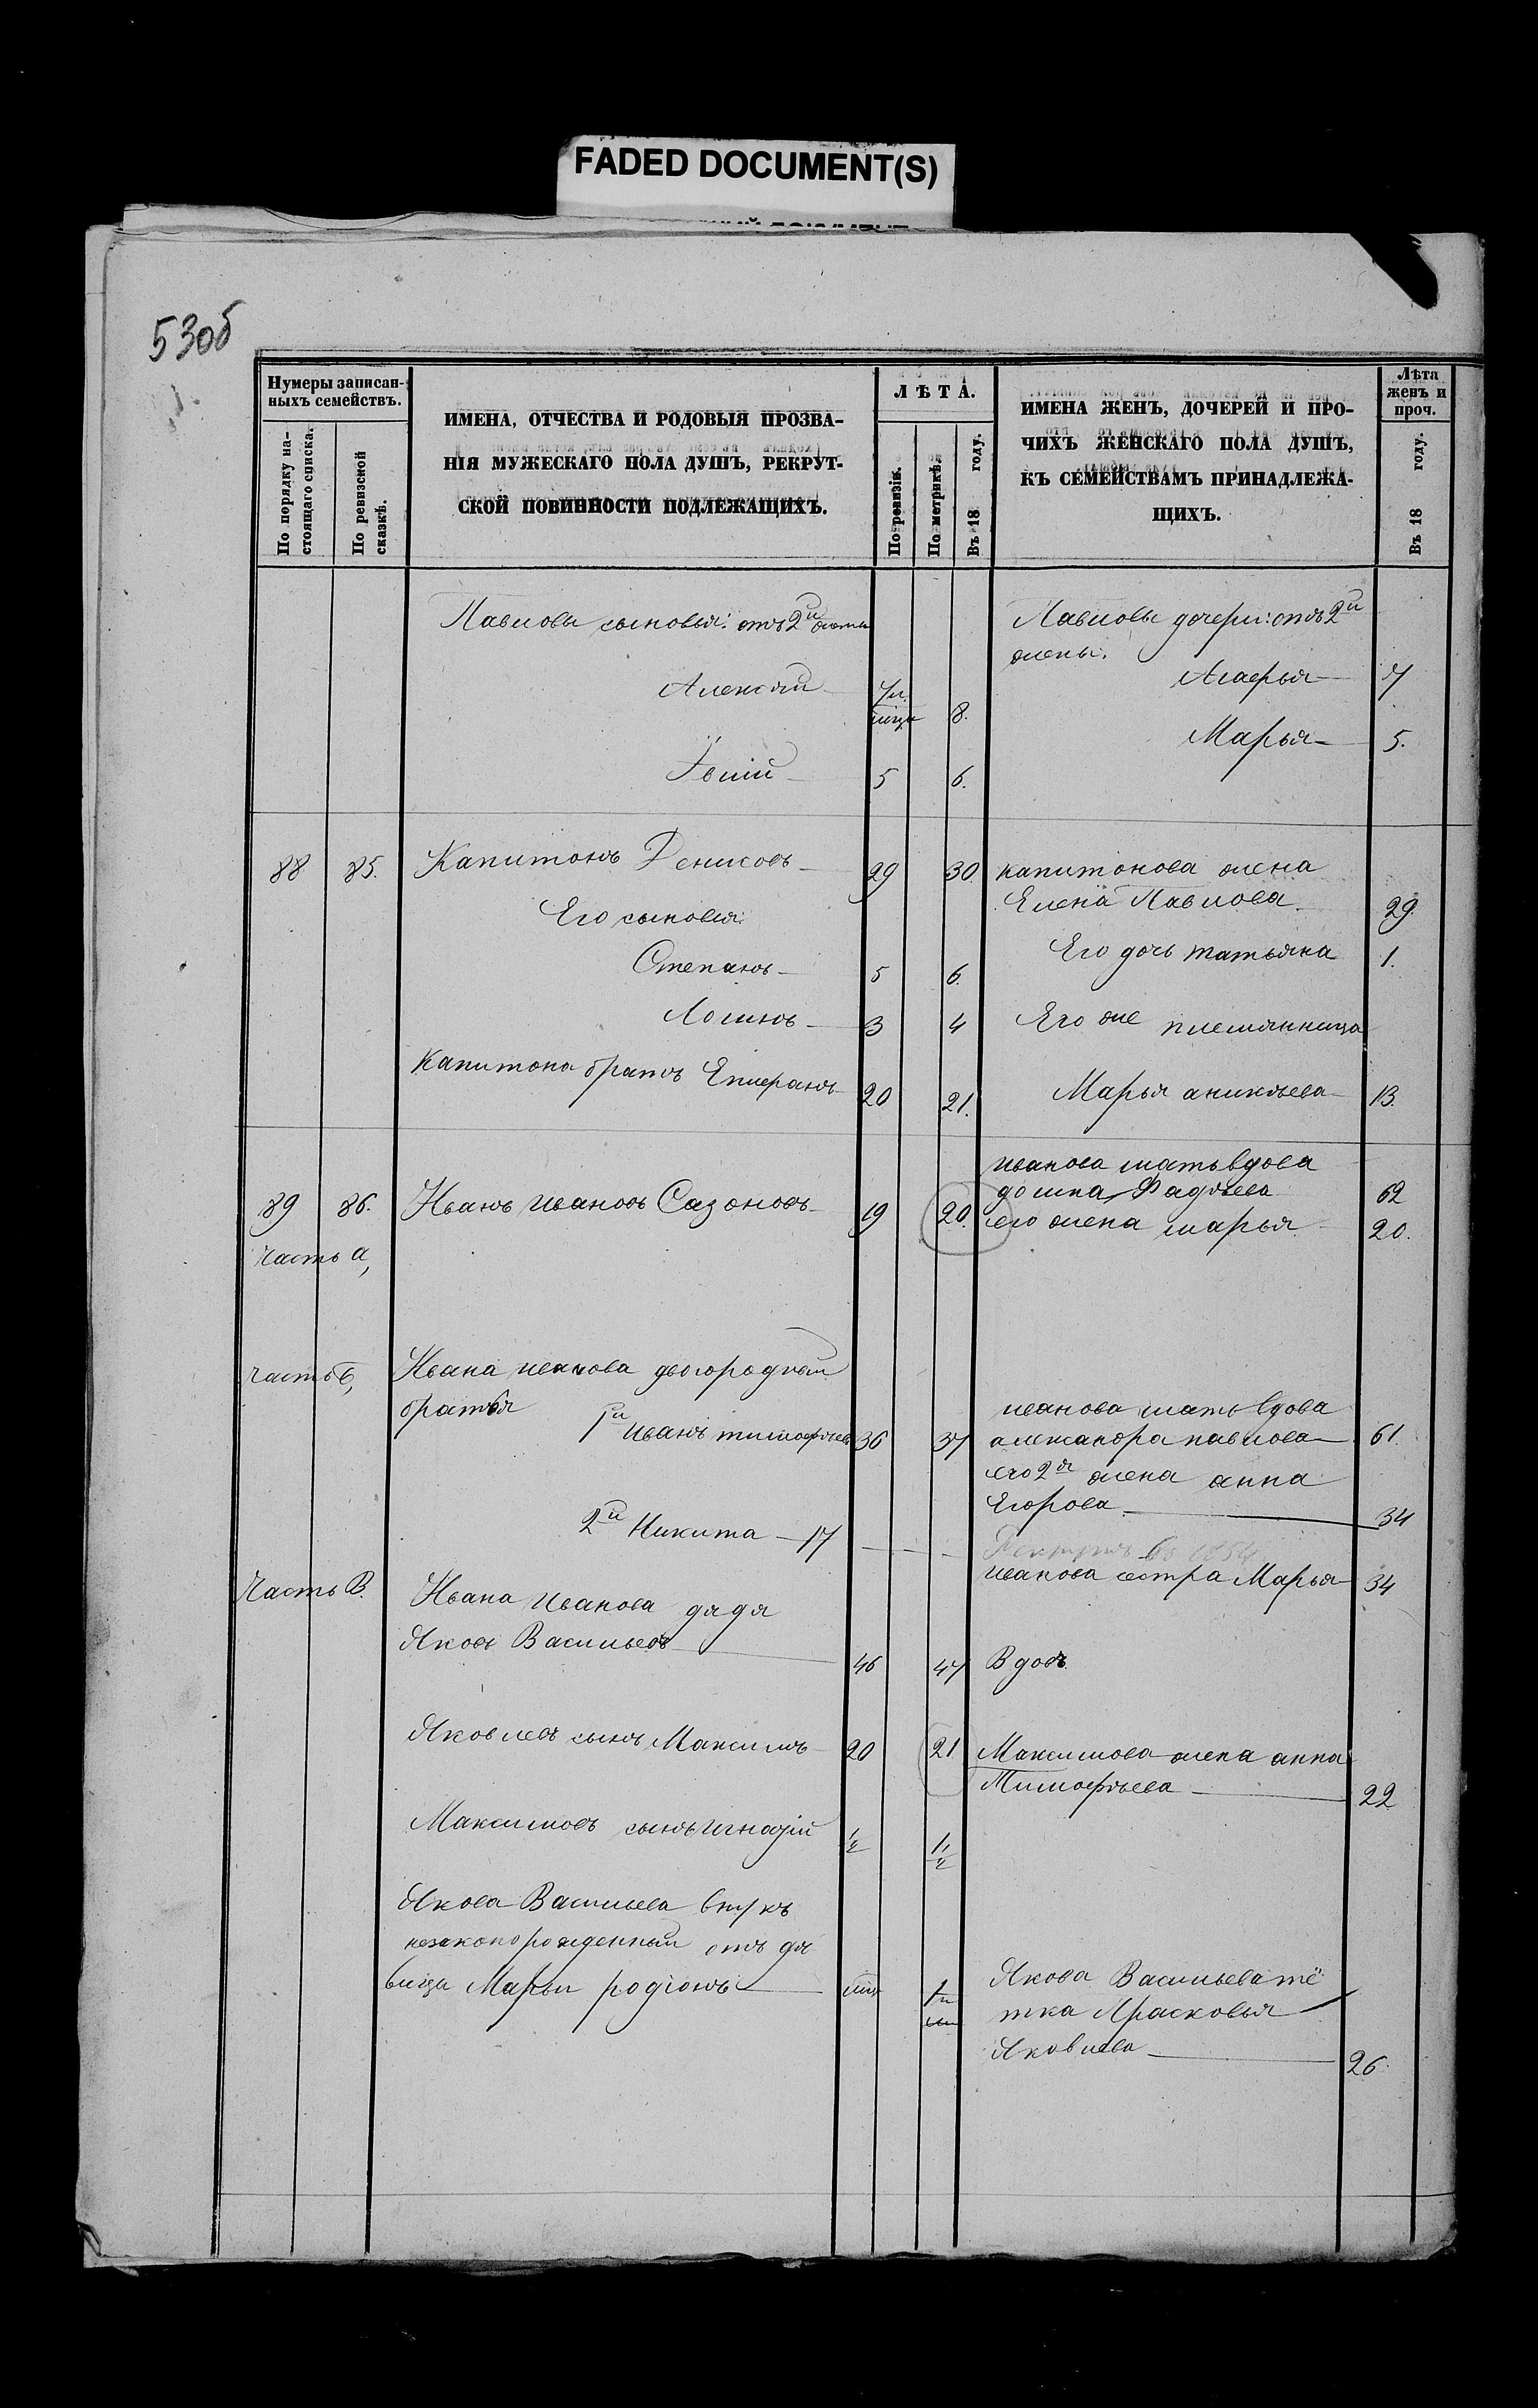 FADED DOCUMENT(S)
530б
Нумеры записан-
ныхъ семействъ.
По порядку на-
стоящаго списка.
По ревизской
сказкѣ.
ИМЕНА, ОТЧЕСТВА И РОДОВЫЯ ПРОЗВА-
НІЯ МУЖЕСКАГО ПОЛА ДУШЪ, РЕКРУТ-
СКОЙ ПОВИННОСТИ ПОДЛЕЖАЩИХЪ.
ЛѢТА.
По ревизіи.
По метрикѣ.
Въ 18 году.
ИМЕНА ЖЕНЪ, ДОЧЕРЕЙ И ПРО-
ЧИХЪ ЖЕНСКАГО ПОЛА ДУШЪ,
КЪ СЕМЕЙСТВАМЪ ПРИНАДЛЕЖА-
ЩИХЪ.
Лѣта
женъ и
проч.
Въ 18 году.
Павловы сыновья: отъ 2й жены
Павловы дочери: отъ 2й
жены.
Алексѣй 8.
Агафья 7
Марья 5.
5 6.
88 85. Капитонъ Денисовъ 29 30. капитонова жена
Елена Павлова 29.
Его сыновья:
Степанъ 5 6.
Его дочь татьяна 1.
Логинъ 3 4
Его же племянница
Капитона братъ Епифанъ 20 21.
Марья аникѣева 13.
иванова мать вдова
домна Фадѣева 62
89 86. Иванъ ивановъ Сазоновъ 19 20. его жена марья 20.
Часть а,
часть б, Ивана иванова двоюродный
братья
1й иванъ тимофѣевъ 36 37
иванова мать вдова
александра павлова 61.
его 2я жена анна
Егорова 34
2й Никита 17
Рекрутъ въ 1854
иванова сестра Марья 34
Часть В. Ивана Иванова дядя
Яковъ Васильевъ 46 47 Вдовъ
Яковлевъ сынъ Максимъ 20 21 Максимова жена анна
Тимофѣева 22
Максимовъ сынъ игнатій ½ 1½
Якова Васильева внукъ
незаконорожденный отъ дѣ
вицы Марьи родіонъ
Якова Васильева тё
тка Прасковья
Яковлева 26.